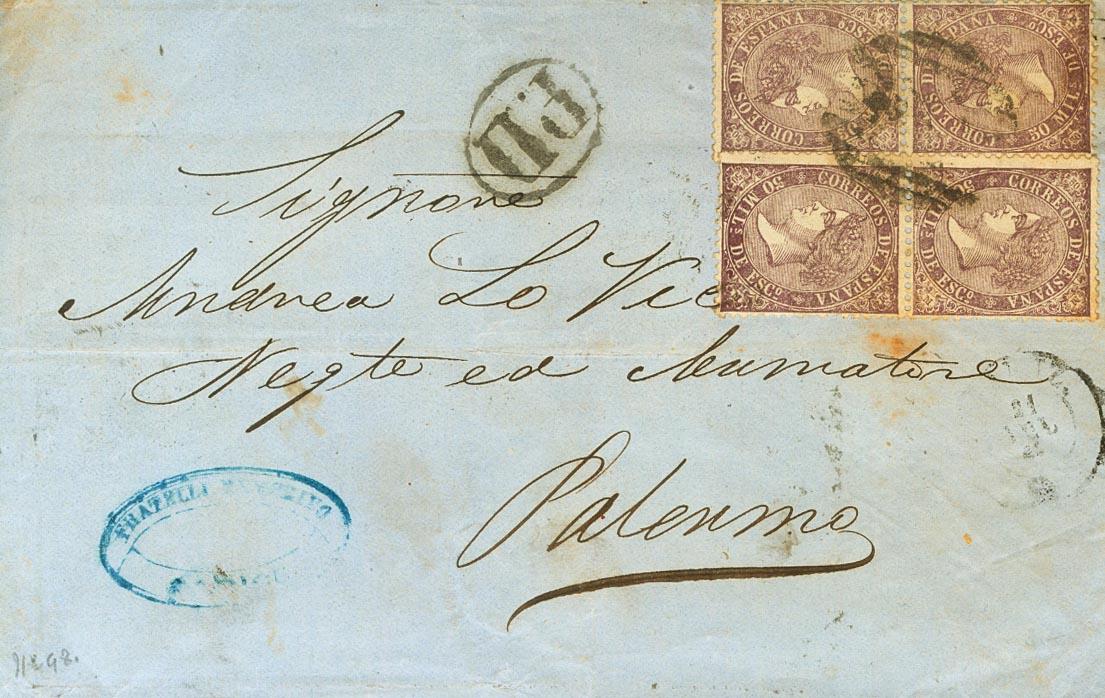 P.D
CORREOS DE ESPAÑA
50 MIL.S DE ESCO
CORREOS DE ESPAÑA
50 MIL.S DE ESCO
CORREOS DE ESPAÑA
50 MIL.S DE ESCO
CORREOS DE ESPAÑA
50 MIL.S DE ESCO
Signore
Andrea Lo Vic
Negte ed Armatore
Palermo
21
FRATELLI